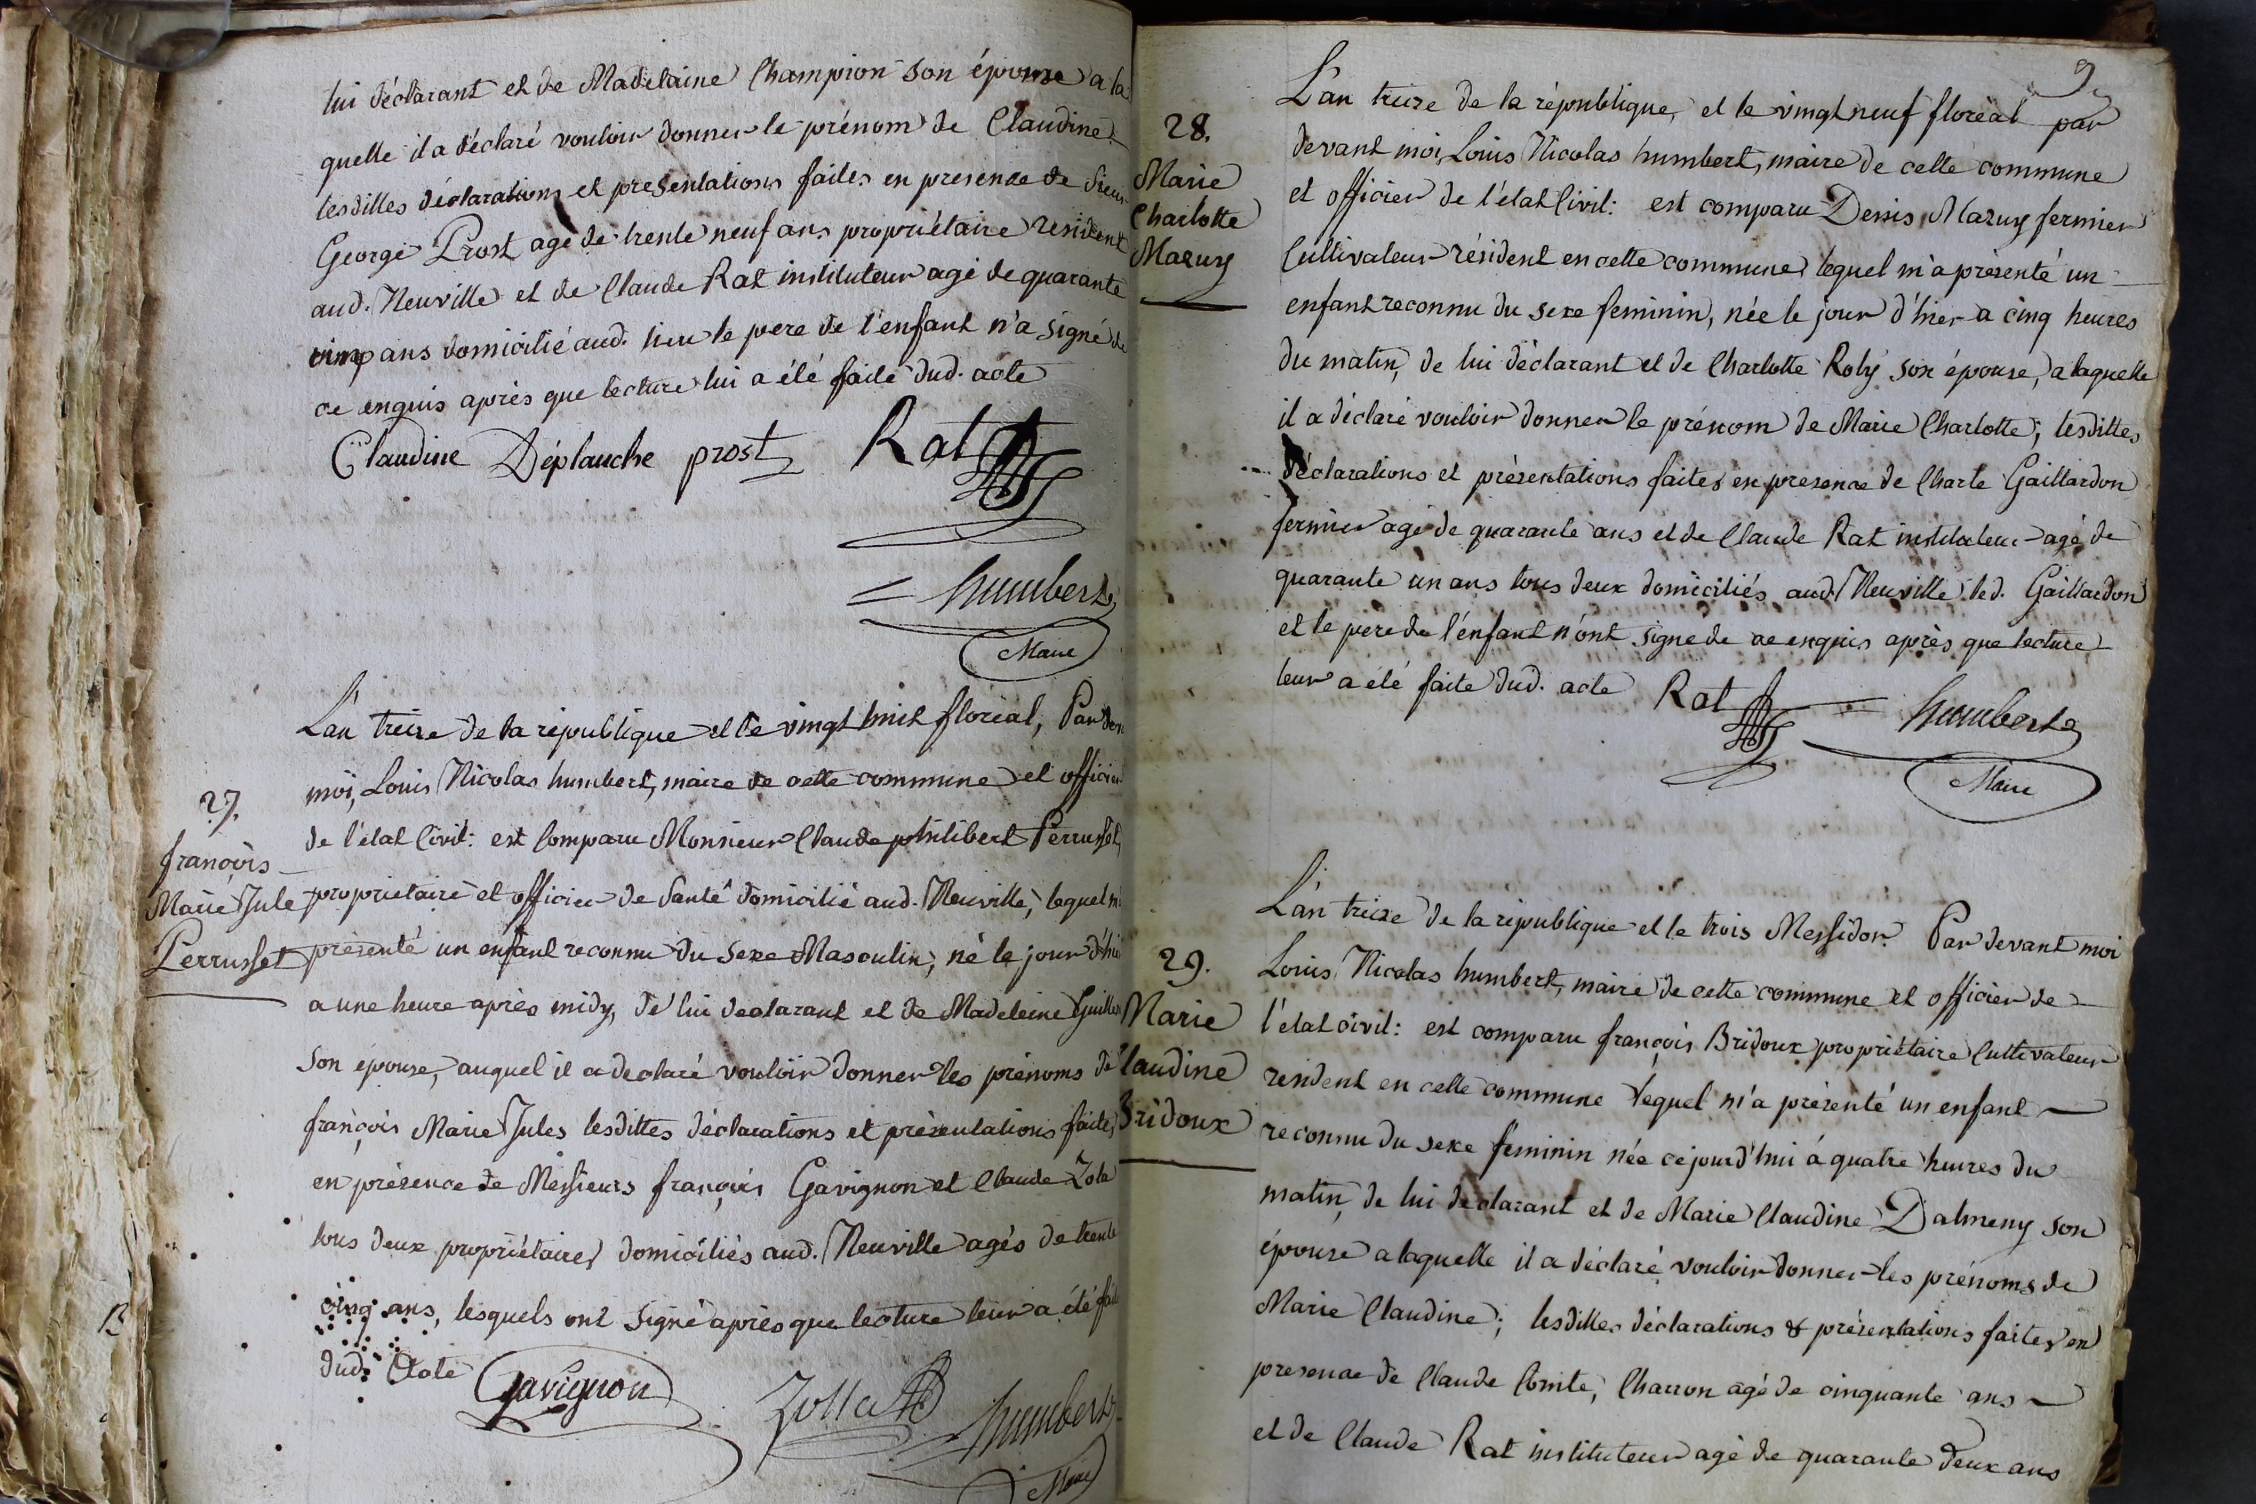 lui déclarant et de Madelaine Champion son épouse a la
quelle il a déclaré vouloir donner le prénom de Claudine
lesdittes déclarations et presentations faites en presence de Sieur
George Prost agé de trente neuf ans propriétaire résident
aud. Neuville et de Claude Rat instituteur agé de quarante
cinq ans domicilié aud. lieu le pere de l'enfant n'a signé de
ce enquis après que lecture lui a été faite dud. acte
Claudine Déplauche prost Rat
humbert
Maire
27.
françois
Marie Jule
Perrusset
L'an treize de la république et le vingt huit floréal, Par dev
moi, Louis Nicolas humbert, maire de cette commune et officier
de l'état Civil: est Comparu Monsieur Claude philibert Perrusset,
propriétaire et officier de Santé domicilié aud. Neuville, lequel m'
présenté un enfant reconnu du sexe Masculin, né le jour d'hier
a une heure après midy, de lui declarant et de Madeleine
son épouse, auquel il a declaré vouloir donner les prénoms de
françois Marie Jules lesdittes déclarations et présentations faites,
en présence de Messieurs françois Gavignon et Claude Zola
tous deux propriétaires domiciliés aud. Neuville agés de trente
cinq ans, lesquels ont signé après que lecture leur a été faite
dud. Acte
Gavignon Zolla humbert
Maire
9
28.
Marie
Charlotte
Mazuy
L'an treize de la république, et le vingt neuf floréal par
devant moi, Louis Nicolas humbert, maire de cette commune
et officier de l'état Civil: est comparu Denis Mazuy fermier
Cultivateur résident en cette commune lequel m'a présenté un
enfant reconnu du sexe feminin, née le jour d'hier a cinq heures
du matin, de lui déclarant et de Charlotte Roby son épouse, a laquelle
il a déclaré vouloir donner le prénom de Marie Charlotte; lesdittes
déclarations et présentations faites en presence de Charle Gaillardon
fermier agé de quarante ans et de Claude Rat instituteur agé de
quarante un ans tous deux domiciliés aud. Neuville led. Gaillardon
et le pere de l'enfant n'ont signé de ce enquis après que lecture
leur a été faite dud. acte Rat humbert
Maire
29.
Marie
Claudine
Bridoux
L'an treize de la république et le trois Messidor. Par devant moi
Louis Nicolas humbert, maire de cette commune et officier de
l'état civil: est comparu françois Bridoux propriétaire Cultivateur
resident en cette commune lequel m'a présenté un enfant
reconnu du sexe feminin née cejourd'hui á quatre heures du
matin, de lui declarant et de Marie Claudine Dalmeny son
épouse a laquelle il a déclaré vouloir donner les prénoms de
Marie Claudine; lesdittes déclarations & présentations faites en
presence de Claude Comte, Charron agé de cinquante ans
et de Claude Rat instituteur agé de quarante deux ans